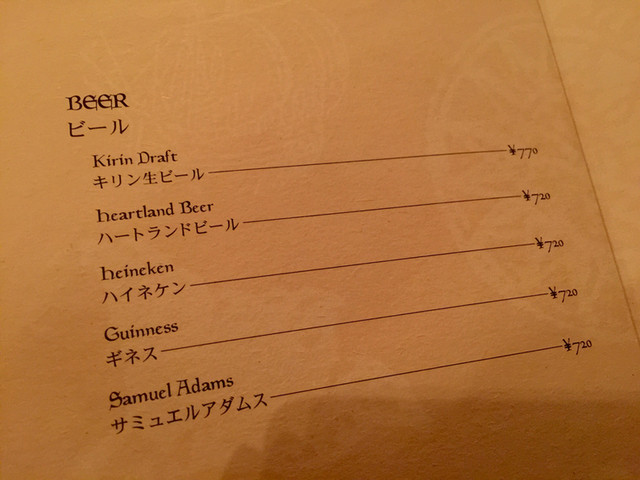 BEER
ビール
Kirin Draft
キリン生ビール ¥770
Heartland Beer
ハートランドビール ¥720
Heineken
ハイネケン ¥720
Guinness
ギネス ¥720
Samuel Adams
サミュエルアダムス ¥720